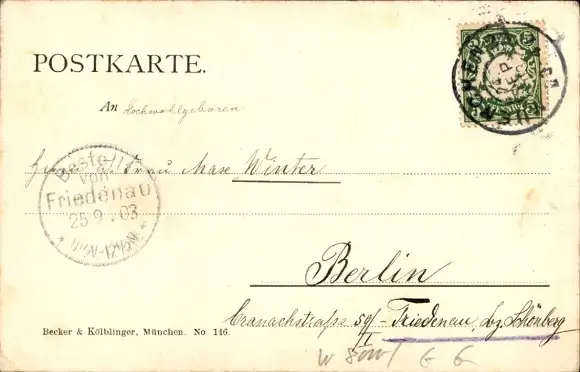 POSTKARTE.
An Hochwohlgeboren
Herrn u. Frau Max Winter
Bestellt
von
Friedenau
25.9.03
Berlin
Cranachstraße 59/II Friedenau, bz. Schönberg
Becker & Kölblinger, München. No 146.
MÜNCHEN
SEP
5